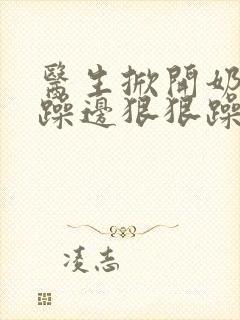 醫生掀開奶
躁邊狠狠躁
凌志